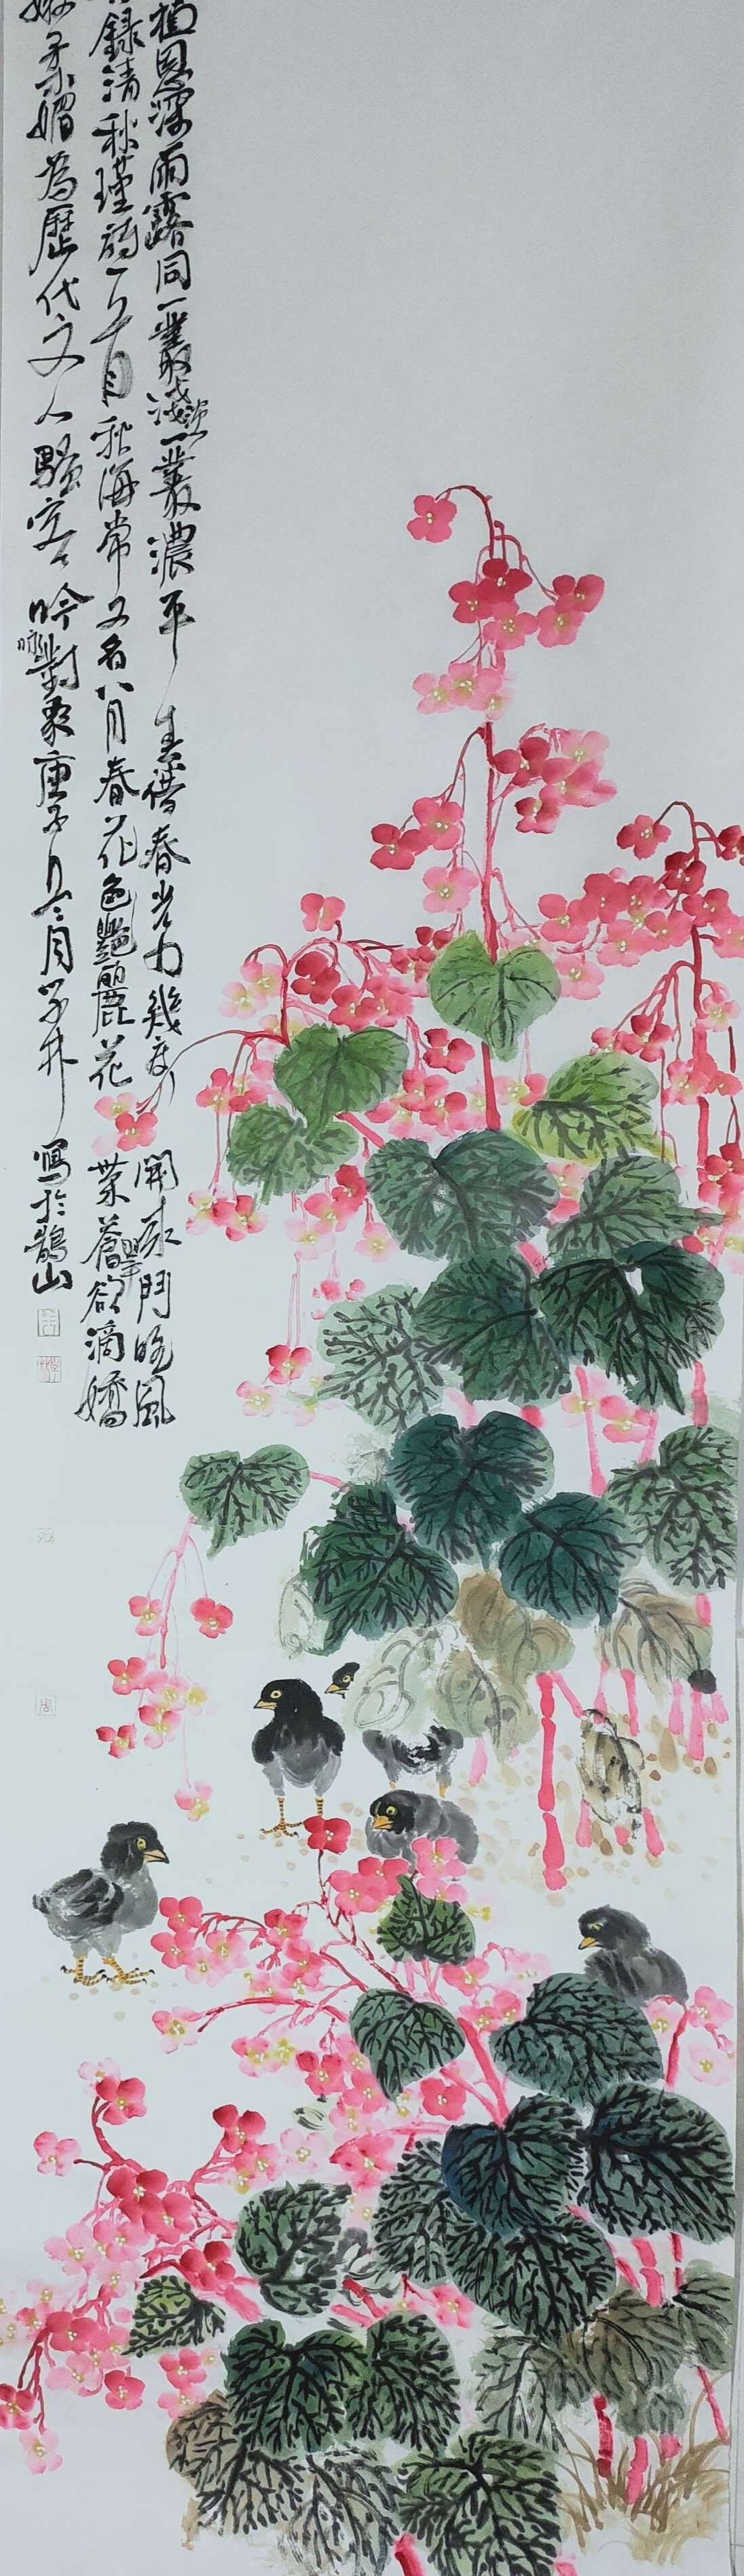 植恩深雨露同一叢淺淡一叢濃平生不借春光力幾度開來鬥晚風
錄清秋瑾詩一首秋海棠又名八月春花色艷麗花葉蒼翠欲滴嬌
柔媚為歷代文人騷客吟咏對象庚子 月 寫於鵲山